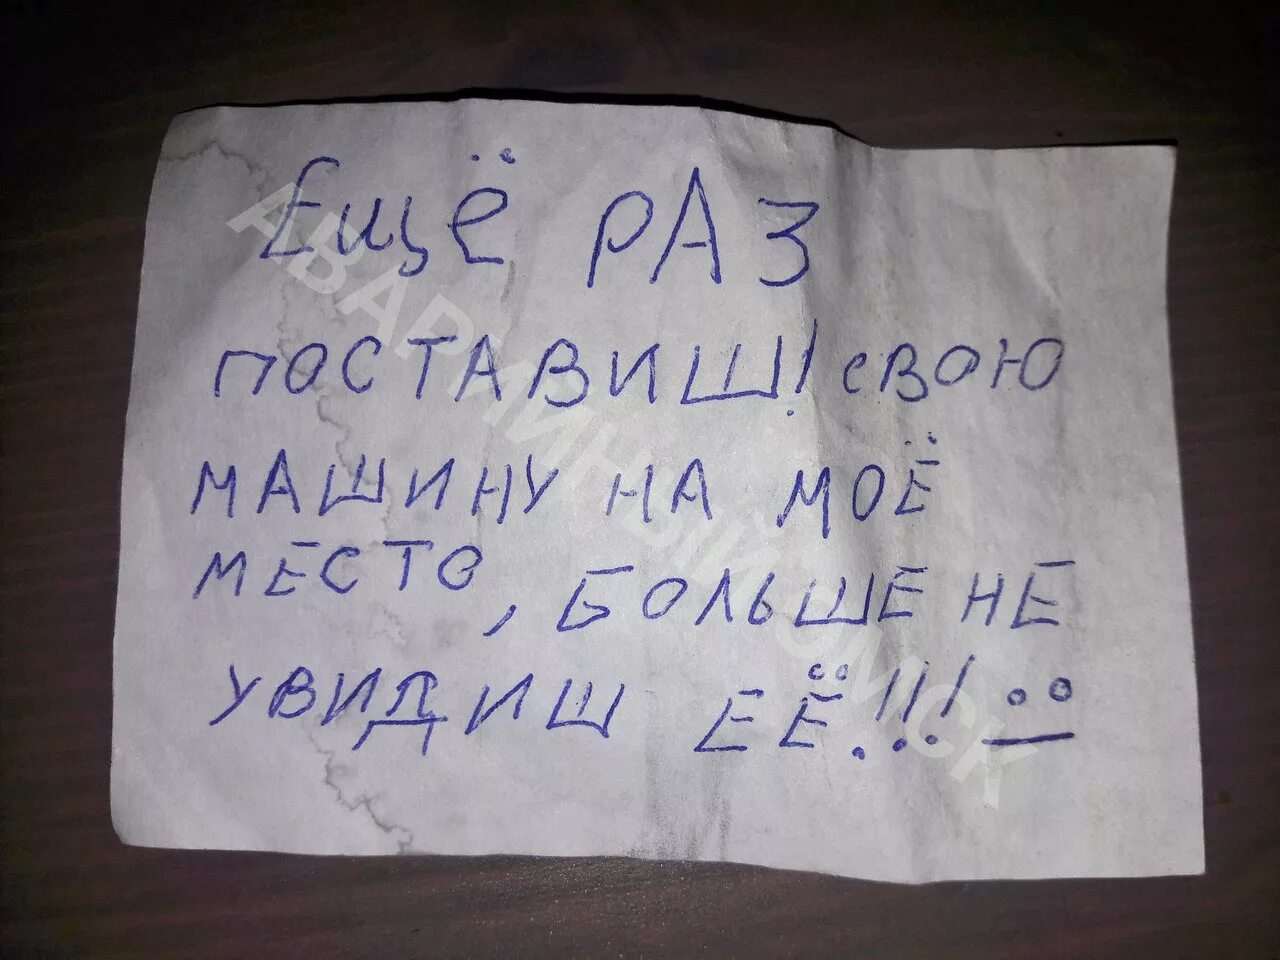 Ещё РАЗ
ПОСТАВИШ! СВОЮ
МАШИНУ НА МОЁ
МЕСТО, БОЛЬШЕ НЕ
УВИДИШ ЕЁ!!!
АВАРИЙНЫЙ ОМСК